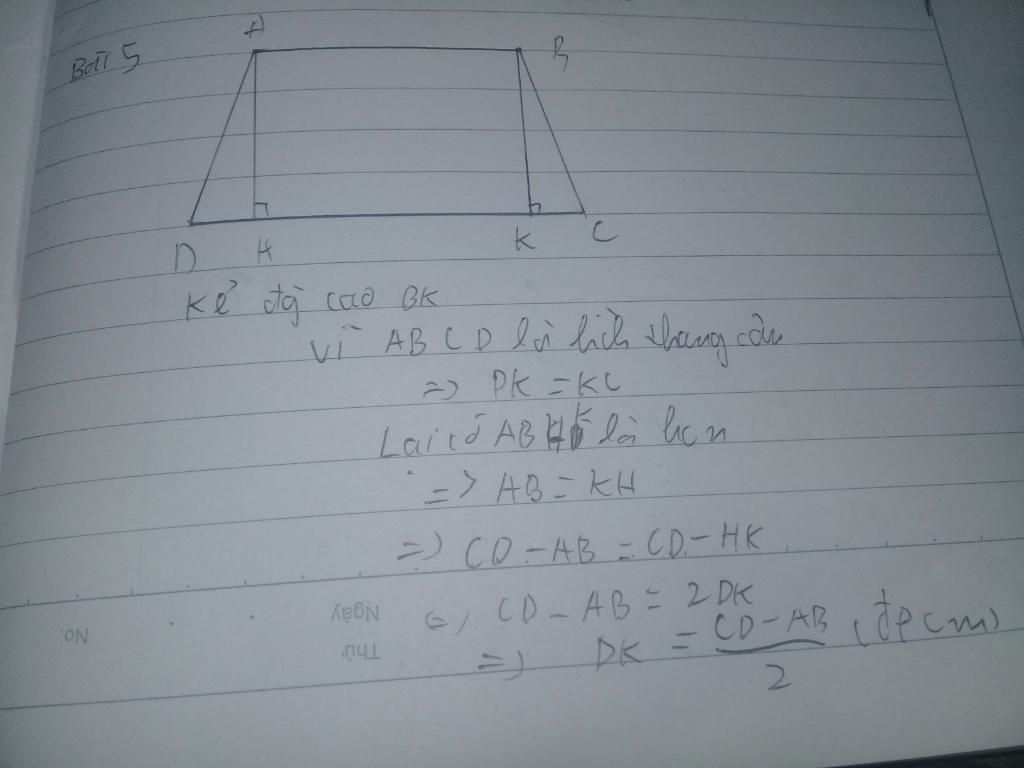 Bài 5
A
B
D
H
K
C
Kẻ đg cao BK
Vì ABCD là hình thang cân
=> DK = KC
Lại có ABHK là hcn
=> AB = KH
=> CD - AB = CD - HK
<=> CD - AB = 2DK
=> DK = \frac{CD - AB}{2} (đpcm)
No.
Thứ
Ngày